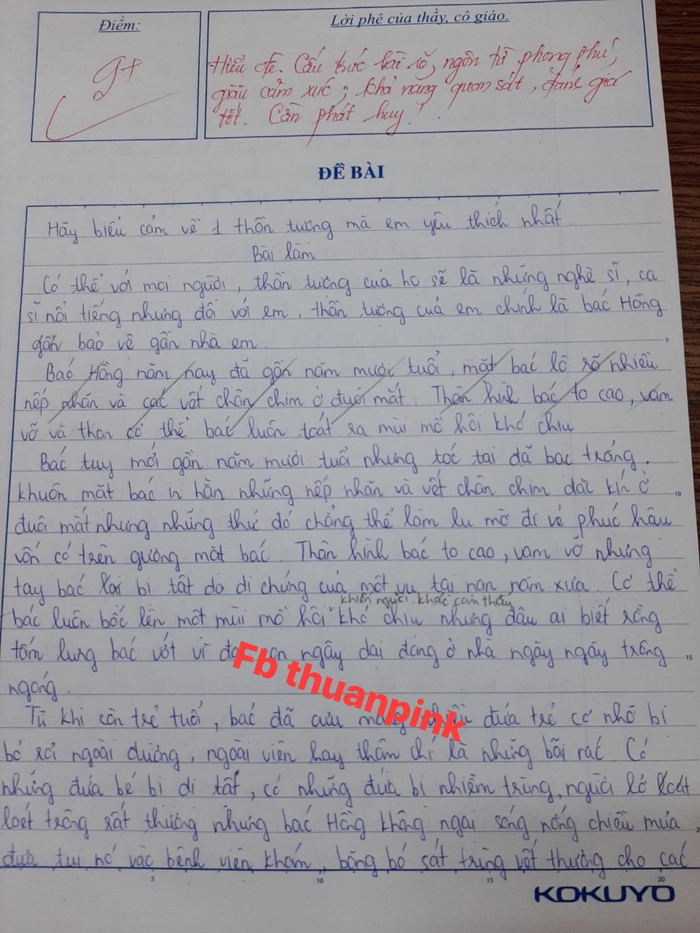 Điểm:
9+
Lời phê của thầy, cô giáo.
Hiểu đề. Cấu trúc bài rõ, ngôn từ phong phú,
giàu cảm xúc; khả năng quan sát, đánh giá
tốt. Cần phát huy!
ĐỀ BÀI
Hãy biểu cảm về 1 thần tượng mà em yêu thích nhất.
Bài làm
Có thể với mọi người, thần tượng của họ sẽ là những nghệ sĩ, ca
sĩ nổi tiếng nhưng đối với em, thần tượng của em chính là bác Hồng
gần bảo vệ gần nhà em.
Bác Hồng năm nay đã gần năm mươi tuổi, mặt bác lộ rõ nhiều
nếp nhăn và các vết chân chim ở đuôi mắt. Thân hình bác to cao, vạm
vỡ và thơn cơ thể bác luôn toát ra mùi mồ hôi khó chịu
Bác tuy mới gần năm mươi tuổi nhưng tóc tai đã bạc trắng,
khuôn mặt bác in hằn những nếp nhăn và vết chân chim dài kín ở
đuôi mắt nhưng những thứ đó chẳng thể làm lu mờ đi vẻ phúc hậu
vốn có trên gương mặt bác. Thân hình bác to cao, vạm vỡ nhưng
tay bác lại bị tật do di chứng của một vụ tai nạn năm xưa. Cơ thể
bác luôn bốc lên một mùi mồ hôi khiến người khác cảm thấy khó chịu nhưng đâu ai biết rằng
tấm lưng bác vất vì đàn con ngây dại đang ở nhà ngày ngày trông
ngóng.
Từ khi còn trẻ tuổi, bác đã cưu mang đứa trẻ cơ nhỡ bị
bỏ rơi ngoài đường, ngoài viện hay thậm chí là những bãi rác. Có
những đứa bé bị dị tật, có những đứa bị nhiễm trùng, người lở loét
loét trông rất thương nhưng bác Hồng không ngại sóng nóng chiều mưa,
đưa tụi nó vào bệnh viện khám, băng bó sát trùng vết thương cho các
Fb thuanpink
KOKUYO